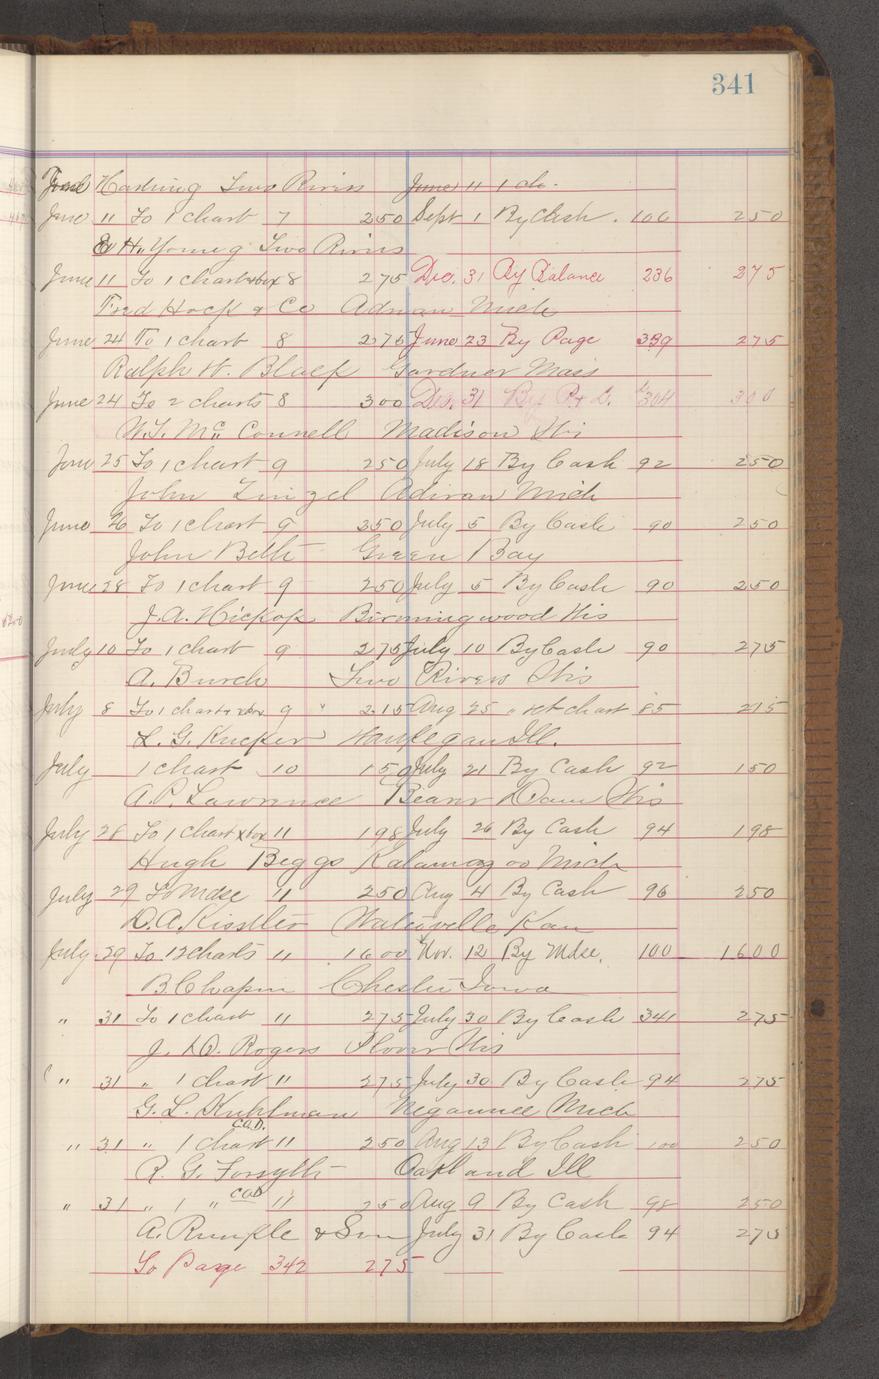 341
Fred Hartung Two Rivers June 11 1 ch.
June 11 To 1 chart 7 250 Sept 1 By Cash. 106 250
E H. Young Two Rivers
June 11 To 1 chart & box 8 275 Dec. 31 By Balance 236 275
Fred Hock & Co Adrian Mich
June 24 To 1 chart 8 275 June 23 By Page 339 275
Ralph H. Black Gardner Mass
June 24 To 2 charts 8 300 Dec. 31 By P. & L. 304 300
W.T. Mc Connell Madison Wis
June 25 To 1 chart 9 250 July 18 By Cash 92 250
John Adrian Mich
June 26 To 1 chart 9 250 July 5 By Cash 90 250
John Beth Green Bay
June 28 To 1 chart 9 250 July 5 By Cash 90 250
J.A. Hickok Birmingwood Wis
July 10 To 1 chart 9 275 July 10 By Cash 90 275
A. Burch Two Rivers Wis
July 8 To 1 chart & box 9 " 215 Aug 25 " ret chart 85 215
L. G. Waukegan Ill.
July 1 chart 10 150 July 21 By Cash 92 150
A.P. Lawrence Beaver Dam Wis
July 28 To 1 chart & box 11 198 July 26 By Cash 94 198
Hugh Beggs Kalamazoo Mich
July 29 To Mdse 11 250 Aug 4 By Cash 96 250
D.A. Kissller Kan
July 29 To 12 charts 11 1600 Nov. 12 By Mdse. 100 1600
B. Chapin Chester Iowa
" 31 To 1 chart 11 275 July 30 By Cash 341 275
J. D. Rogers Plover Wis
" 31 " 1 chart 11 275 July 30 By Cash 94 275
G. L. Kuhlman Negaunee Mich
" 31 " 1 chart C.O.D. 11 250 Aug 13 By Cash 100 250
R. G. Forsyth Oakland Ill
" 31 " 1 " COD 11 250 Aug 9 By Cash 98 250
A. Rumple & Son July 31 By Cash 94 275
To Page 342 275